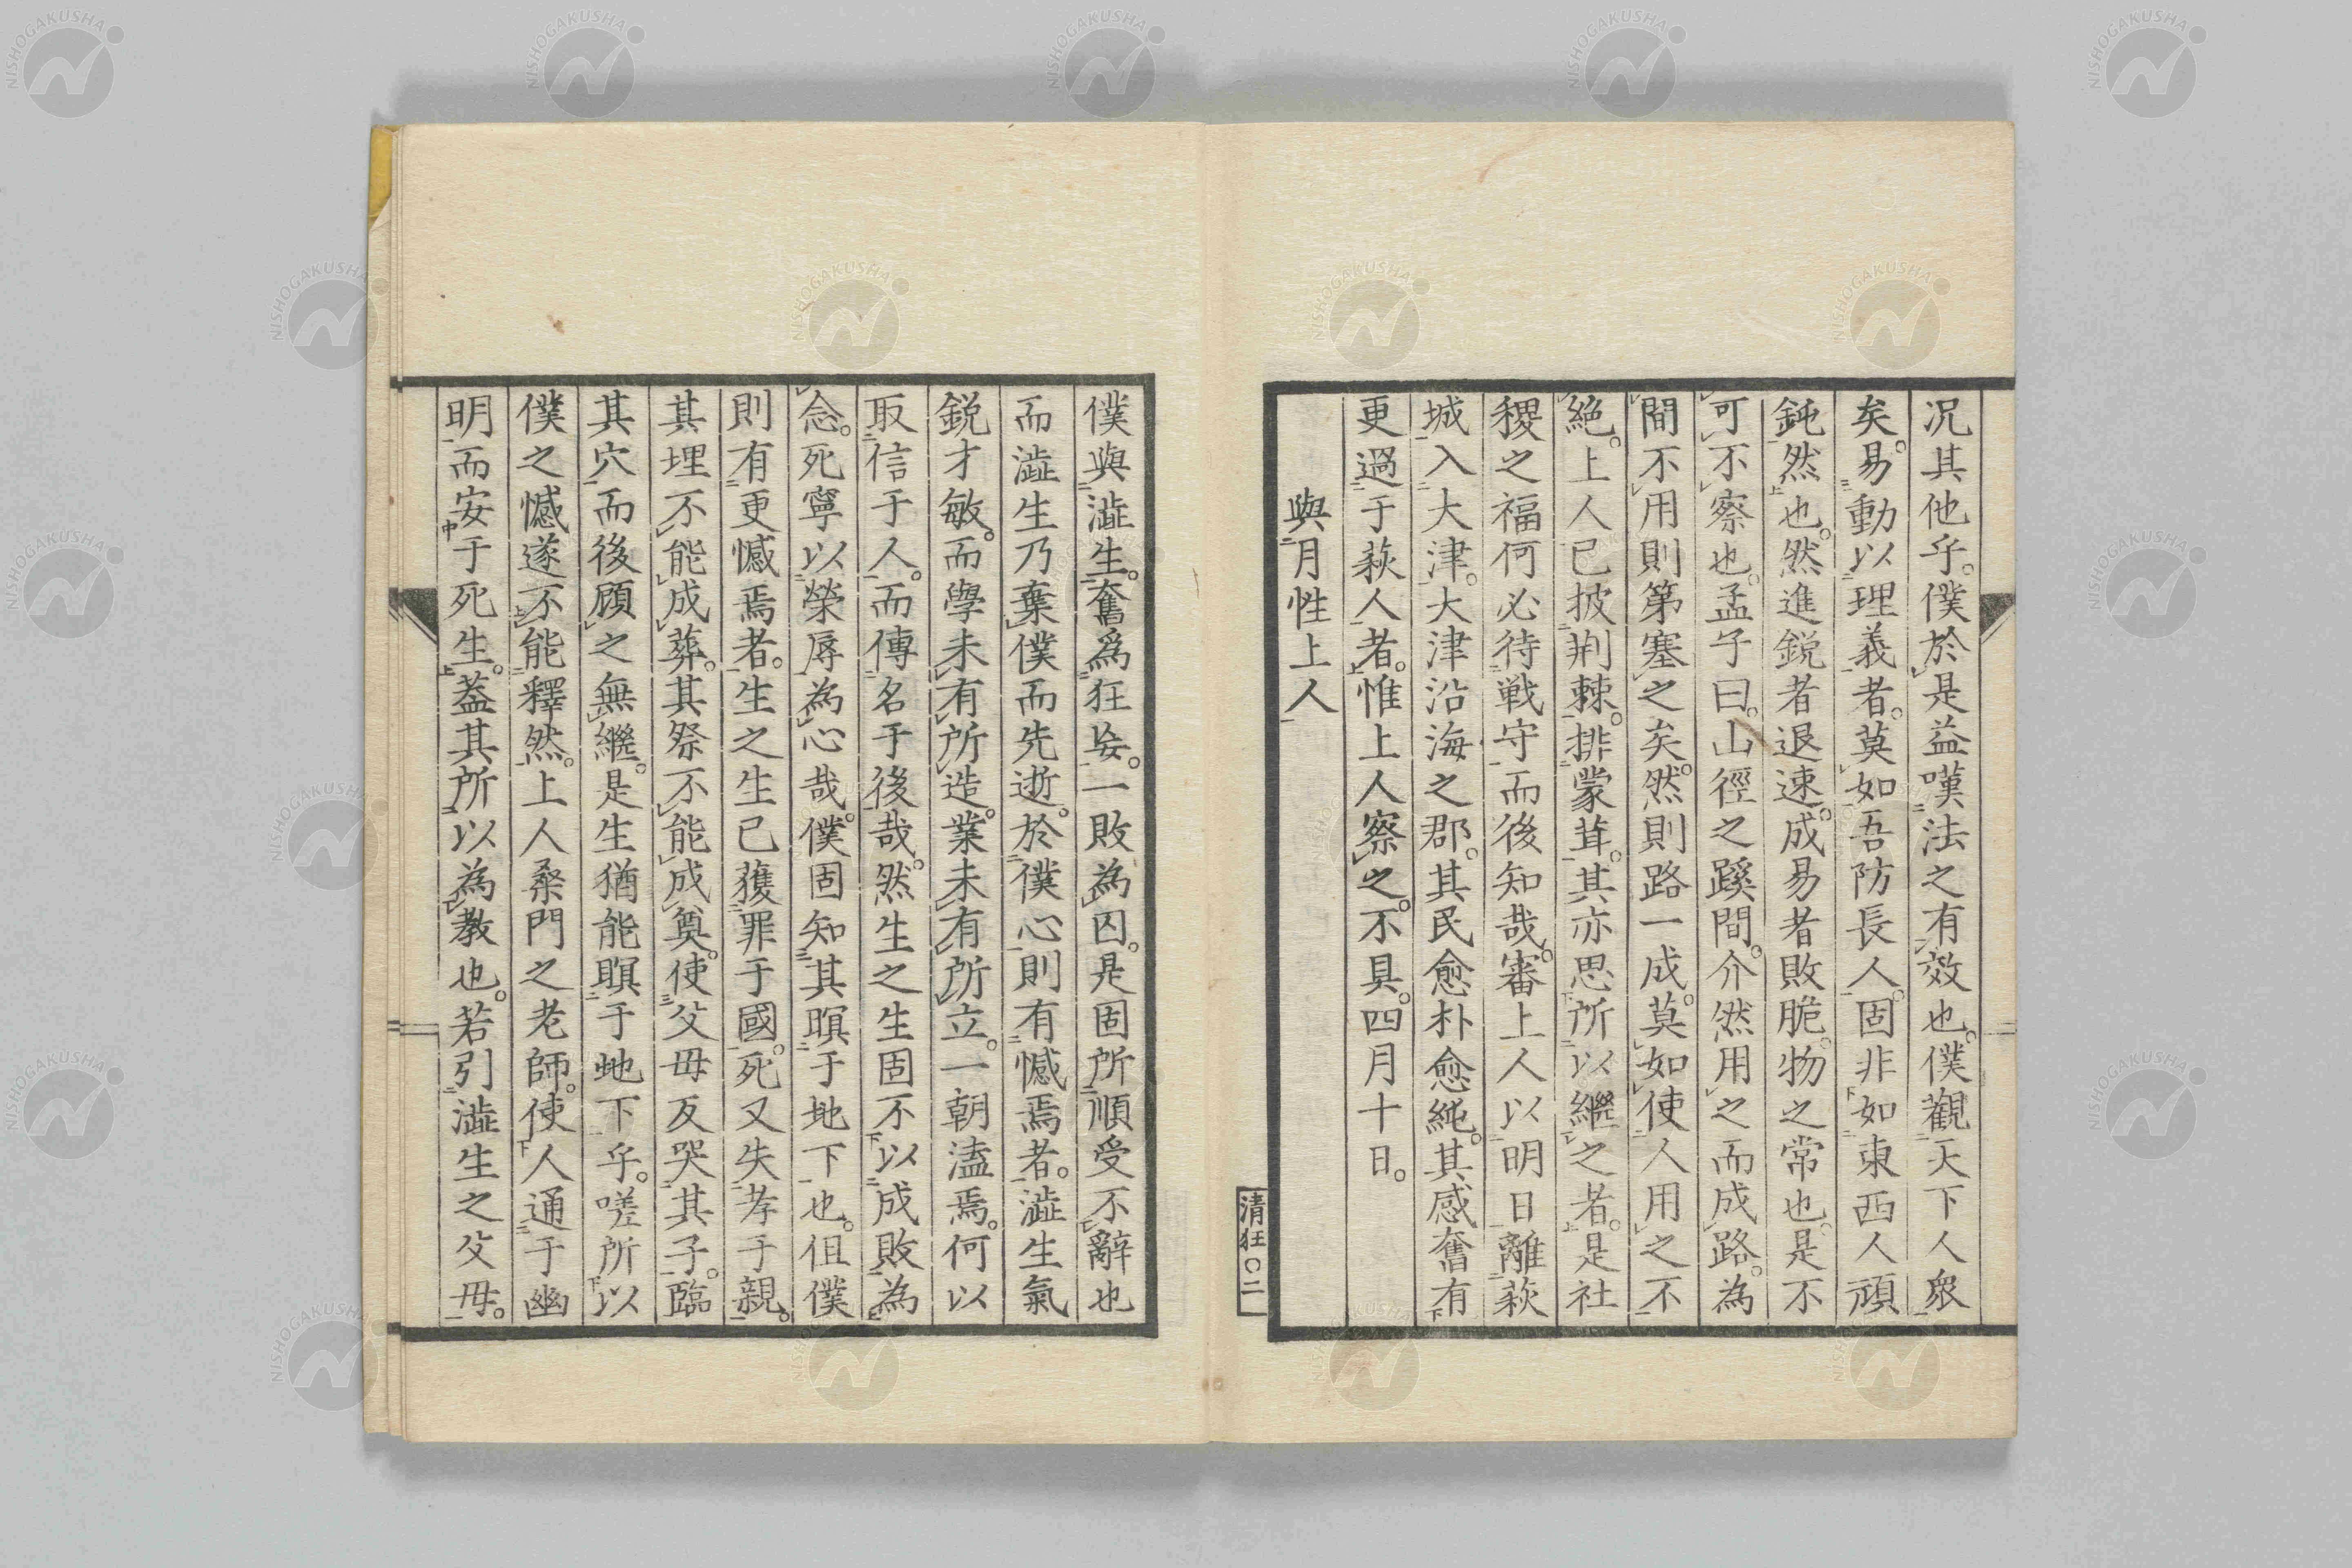 况其他乎。僕於是益嘆法之有效也。僕觀天下人衆
矣。易動以理義者。莫如吾防長人。固非如東西人頑
鈍然也。然進鋭者退速。成易者敗脆。物之常也。是不
可不察也。孟子曰。山徑之蹊間。介然用之而成路。為
間不用則第塞之矣。然則路一成。莫如使人用之不
絶。上人已披荆棘。排蒙茸。其亦思所以繼之者。是社
稷之福何必待戦守而後知哉。審上人以明日離萩
城入大津。大津沿海之郡。其民愈朴愈純。其感奮有
更過于萩人者。惟上人察之。不具。四月十日。
與月性上人
清狂〇二
僕與澁生。奮為狂妄。一敗為囚。是固所順受不辭也
而澁生乃棄僕而先逝。於僕心則有憾焉者。澁生氣
鋭才敏。而學未有所造。業未有所立。一朝溘焉。何以
取信于人。而傳名于後哉。然生之生固不以成敗為
念。死寧以榮辱為心哉。僕固知其瞑于地下也。但僕
則有更憾焉者。生之生已獲罪于國。死又失孝于親。
其埋不能成葬。其祭不能成奠。使父母反哭其子。臨
其穴而後顧之無繼。是生猶能瞑于地下乎。嗟所以
僕之憾遂不能釋然。上人桑門之老師。使人通于幽
明而安于死生。蓋其所以為教也。若引澁生之父母。
NISHOGAKUSHA